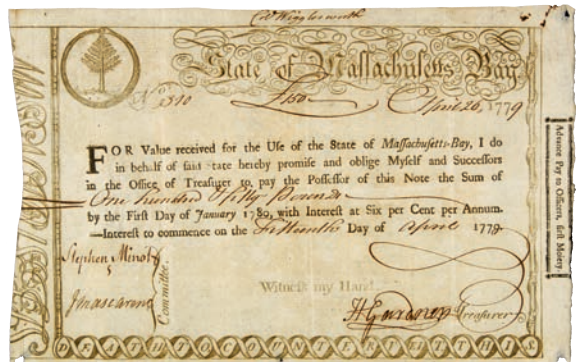 Col Wigglesworth
State of Massachusetts Bay.
No 310 £150 April 26, 1779
FOR Value received for the Use of the State of Massachusetts-Bay, I do
in behalf of said tate hereby promise and oblige Myself and Successors
in the Office of Treasurer to pay the Possessor of this Note the Sum of
One hundred & fifty Pounds
by the First Day of January 1780, with Interest at Six per Cent per Annum.
—Interest to commence on the fifteenth Day of April 1779.
Stephen Minot
J Mascarene
Committee
Witness my Hand
H Gardner Treasurer
Advance Pay to Officers, first Moiety.
DEATH TO COUNTERFEIT THIS